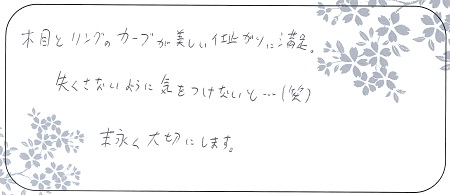 木目とリングのカーブが美しい仕上がりに満足。
失くさないように気をつけないと…(笑)
末永く大切にします。